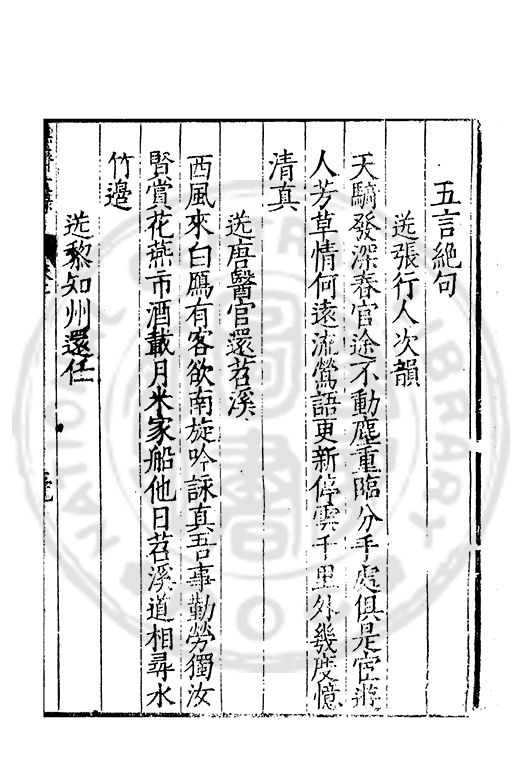 五言絶句
送張行人次韻
天騎發深春官途不動塵重臨分手處俱是宦遊
人芳草情何遠流鶯語更新停雲千里外幾度憶
清真
送唐醫官還苕溪
西風來白鴈有客欲南旋吟詠真吾事勤勞獨汝
賢賞花燕市酒載月米家船他日苕溪道相尋水
竹邉
送黎知州還任